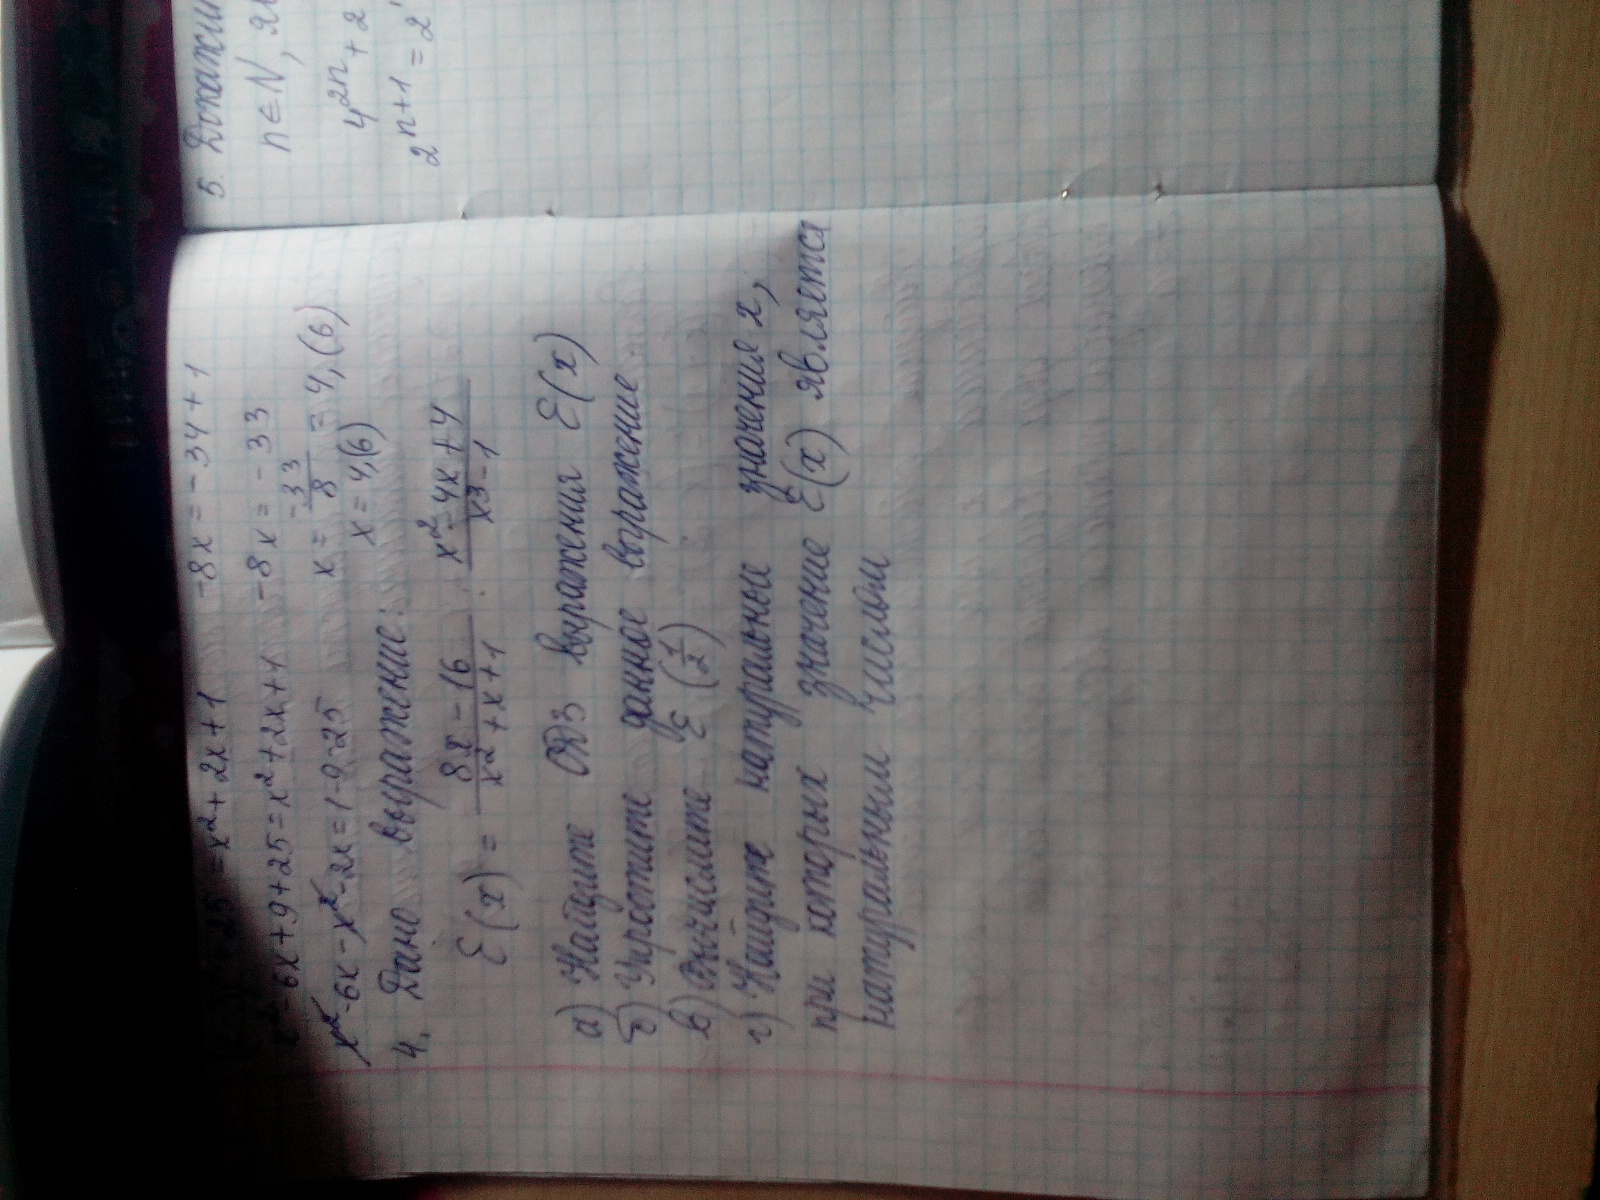 + 25 = x² + 2x + 1 -8x = -34 + 1
x² - 6x + 9 + 25 = x² + 2x + 1 -8x = -33
x² - 6x - x² - 2x = 1 - 9 - 25 x = -33/8 = 4,(6)
x = 4,(6)
4. Дано выражение:
E(x) = (8x - 16)/(x² + x + 1) : (x² - 4x + 4)/(x³ - 1)
а) Найдите ОДЗ выражения E(x)
б) Упростите данное выражение
в) Вычислите E(1/2)
г) Найдите натуральные значения x,
при которых значение E(x) является
натуральным числом
5. Докажи
n ∈ N,
4²ⁿ + 2
2ⁿ⁺¹ = 2